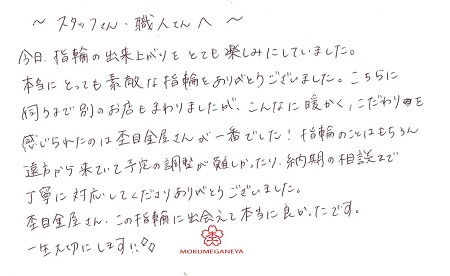 ～ スタッフさん・職人さんへ ～
今日、指輪の出来上がりをとても楽しみにしていました。
本当にとっても素敵な指輪をありがとうございました。こちらに
伺うまで別のお店もまわりましたが、こんなに暖かく、こだわりを
感じられたのは杢目金屋さんが一番でした！指輪のことはもちろん
遠方から来ていて予定の調整が難しかったり、納期の相談まで
丁寧に対応してくださりありがとうございました。
杢目金屋さん、この指輪に出会えて本当に良かったです。
一生大切にします!!
MOKUMEGANEYA